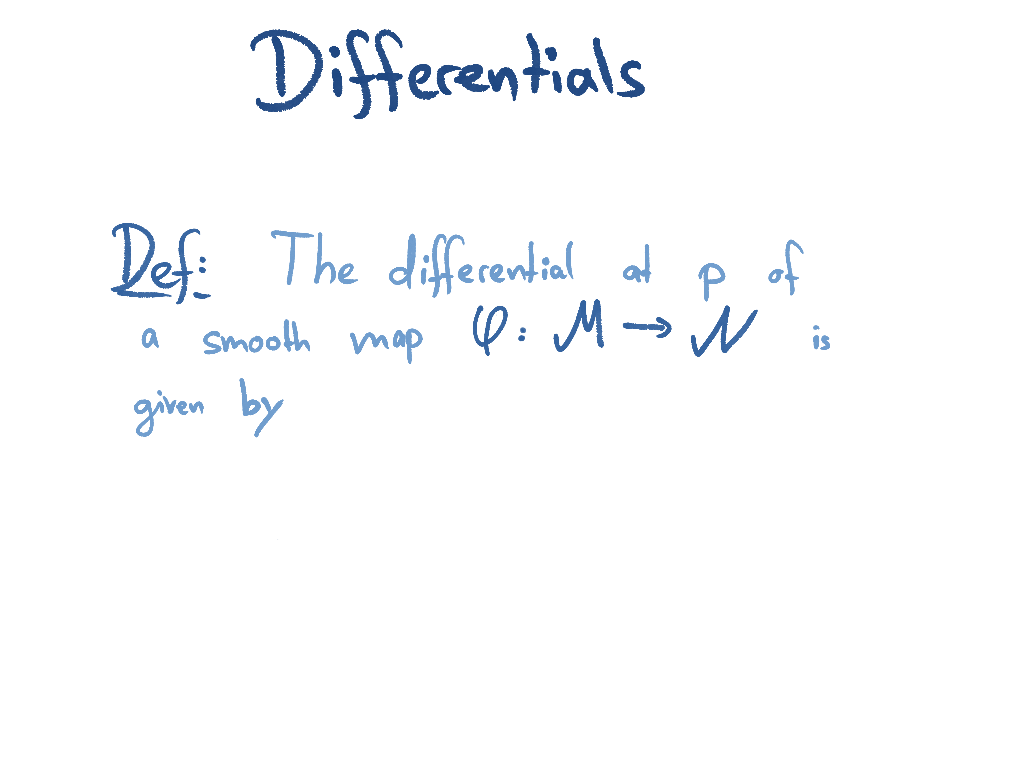 Differentials
Def: The differential at p of
a smooth map φ: M → N is
given by